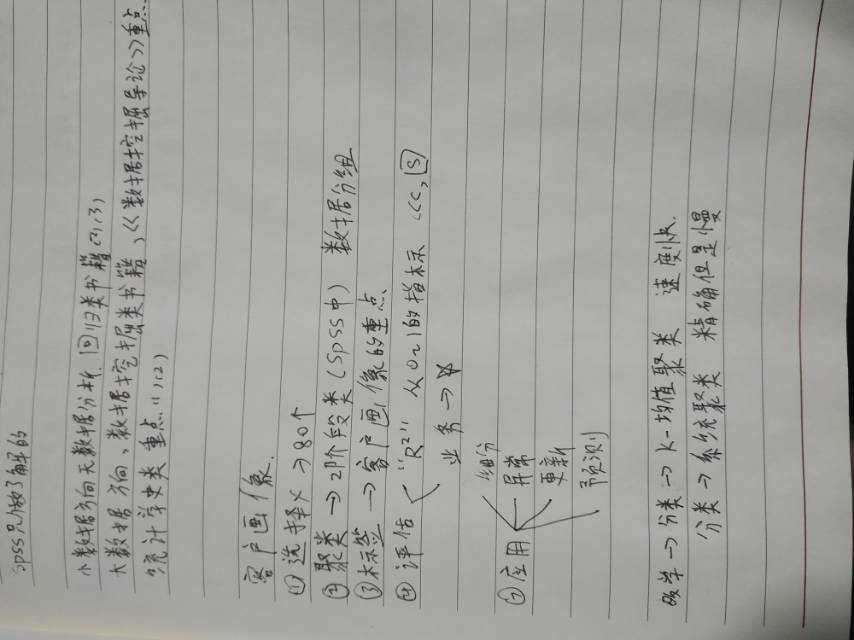 spss只做了解的
小数据方向无数据分析. 回归类书籍(2)(3)
大数据方向, 数据挖掘类书籍, 《数据挖掘导论》重点
统计学史类 重点. (1)(2)
客户画像.
① 选择X → 80个
② 聚类 → 2阶段类(Spss中) 数据分组
③ 标签 → 客户画像的重点
④ 评估 "R²" 从0~1的指标 <<<, S
业务 →
⑤ 应用 细分
异常
更新
预测
→ 分类 → K-均值聚类 速度快.
分类 → 系统聚类 精确但是慢